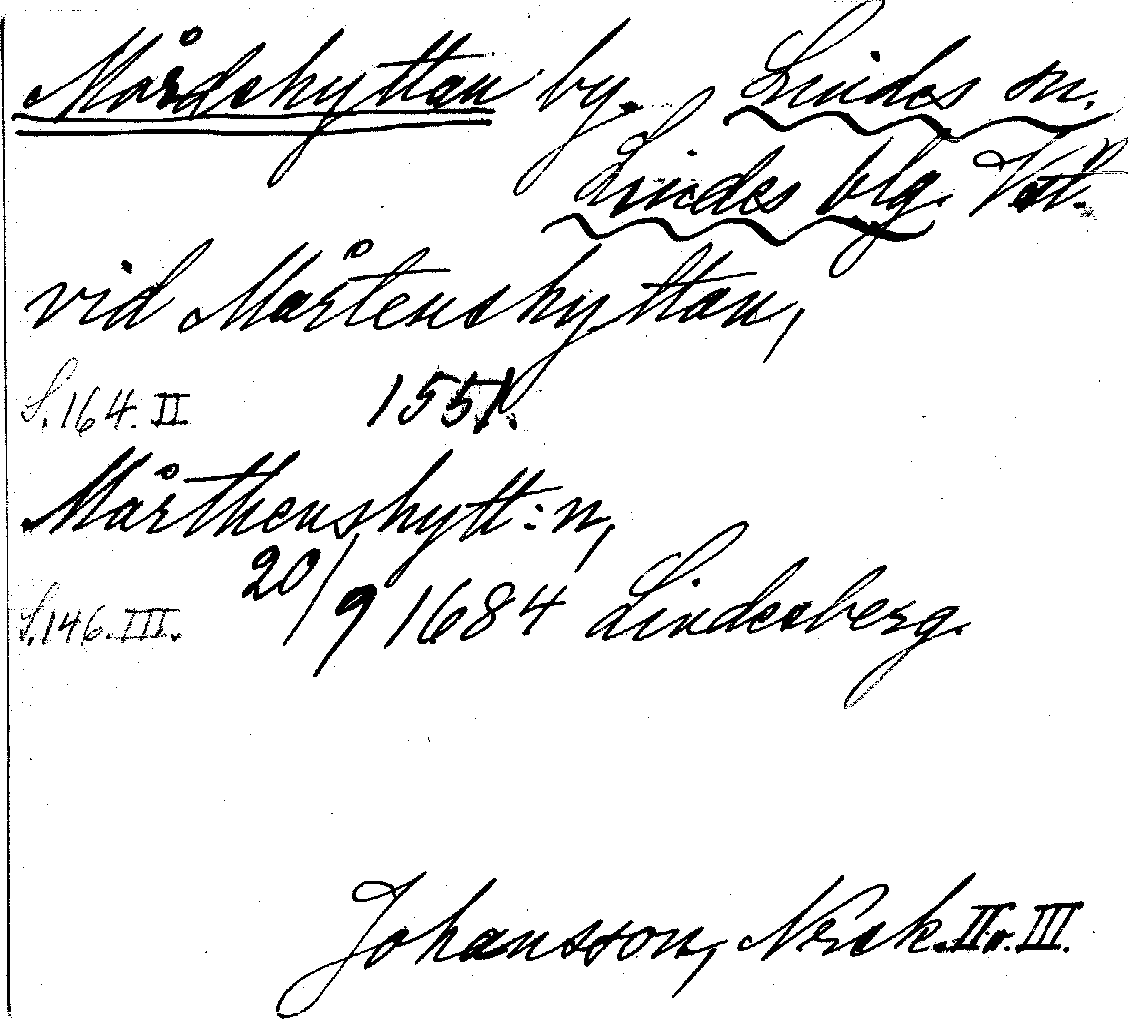 Mårdshyttan by. Lindes sn.
Lindes blg. Vstl.
vid Mårtenshyttan,
S. 164. II 1551.
Mårthenshytt:n,
S. 146. III. 20/9 1684 Lindesberg.
Johansson, Norak. II o. III.